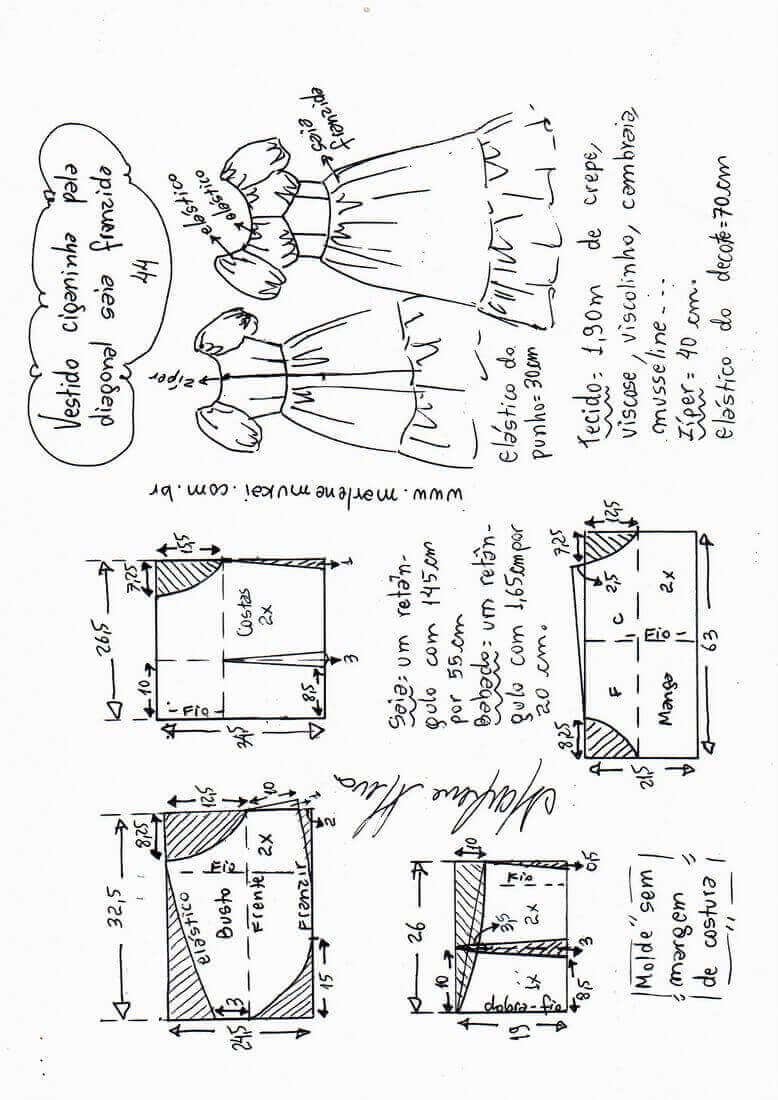 Vestido ciganinha pala
diagonal saia franzida
44
elástico
elástico
saia
franzida
zíper
elástico do
punho=30cm
Tecido= 1,90m de crepe,
viscose, viscolinho, cambraia,
musseline---
Zíper= 40 cm.
elástico do decote=70cm
www.marlenemukai.com.br
26,5
10
7,25
15,5
34,5
Fio
Costas
2x
8,5
3
1
Saia= um retân-
gulo com 145cm
por 55cm
Babado= um retân-
gulo com 1,65cm por
20 cm.
7,25
12,5
2,5
F
C
2x
Fio
Manga
63
8,25
21,5
32,5
8,25
12,5
10
1
2
2x
Fio
elástico
Busto
Frente
Franzir
3
15
24,5
26
10
10
3,5
Fio
2x
0,5
3
8,5
1x
dobra-fio
19
Molde sem
margem
de costura